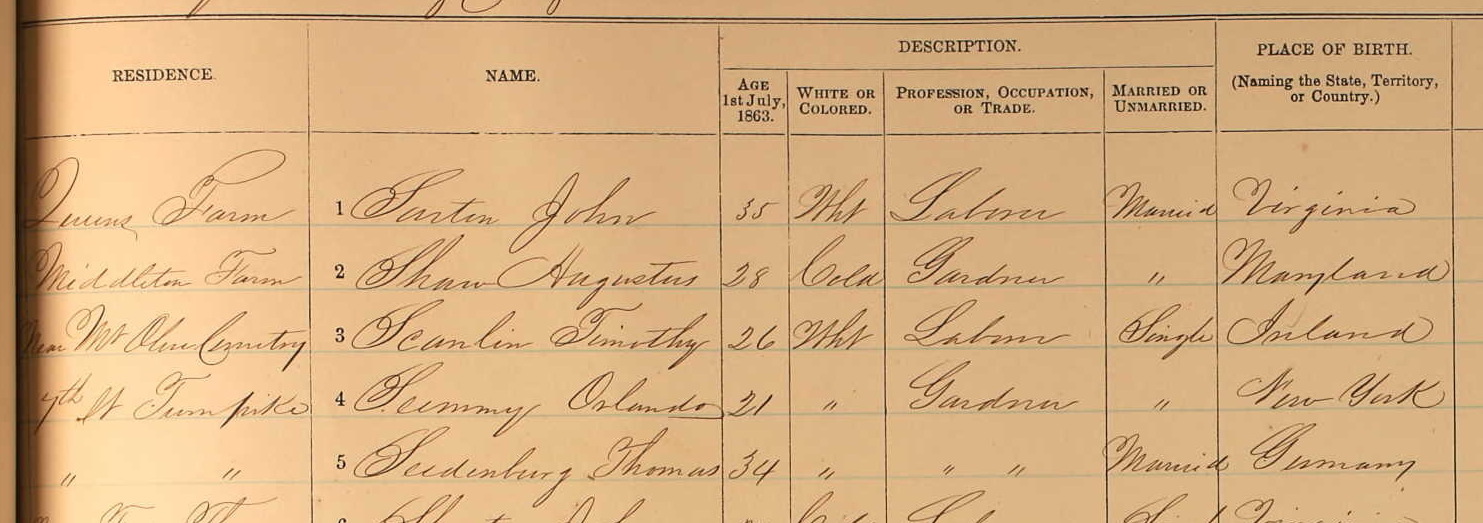 DESCRIPTION.
RESIDENCE. NAME. PLACE OF BIRTH.
AGE 1st July, 1863. WHITE OR COLORED. PROFESSION, OCCUPATION, OR TRADE. MARRIED OR UNMARRIED. (Naming the State, Territory, or Country.)
Farm 1 Sartin John 35 Wht Laborer Married Virginia
Middleton Farm 2 Shaw Augustus 28 Cold Gardner " Maryland
Near Mt Olive Cemetry 3 Scanlin Timothy 26 Wht Laborer Single Ireland
7th St Turnpike 4 Orlando 21 " Gardner " New York
" " 5 Seedenburg Thomas 34 " " " Married Germany